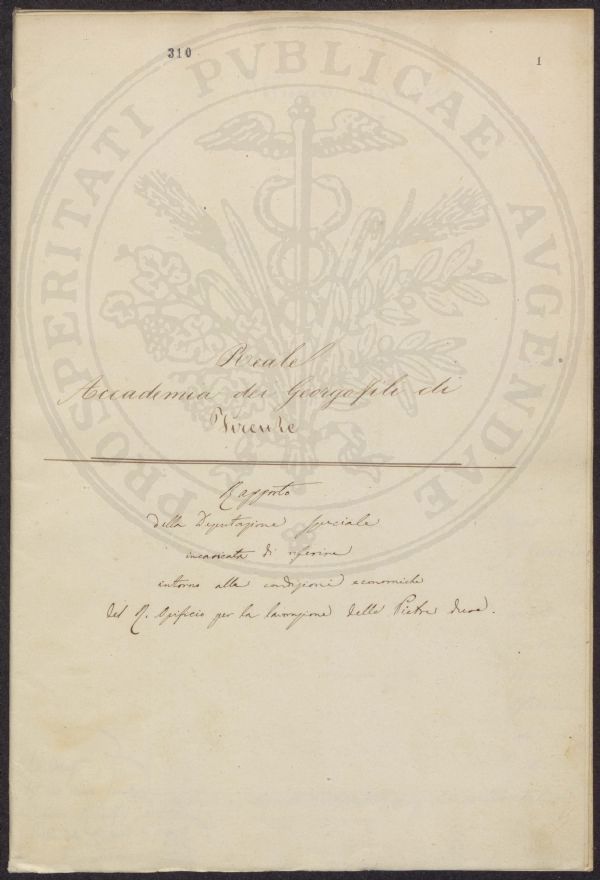 310
1
PROSPERITATI PVBLICAE AVGENDAE
Reale
Accademia dei Georgofili di
Firenze
Rapporto
della Deputazione speciale
incaricata di riferire
intorno alle condizioni economiche
del R. Opificio per la lavorazione delle Pietre dure.